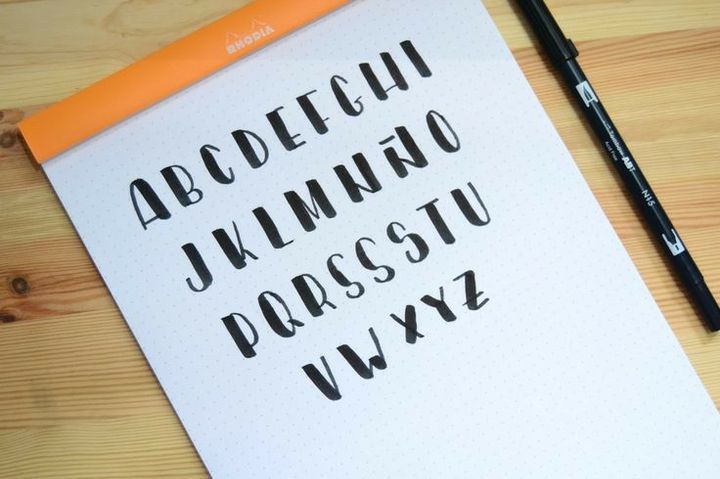 RHODIA
ABCDEFGHI
JKLMNÑO
PQRSSSTU
VWXYZ
ABT
N15